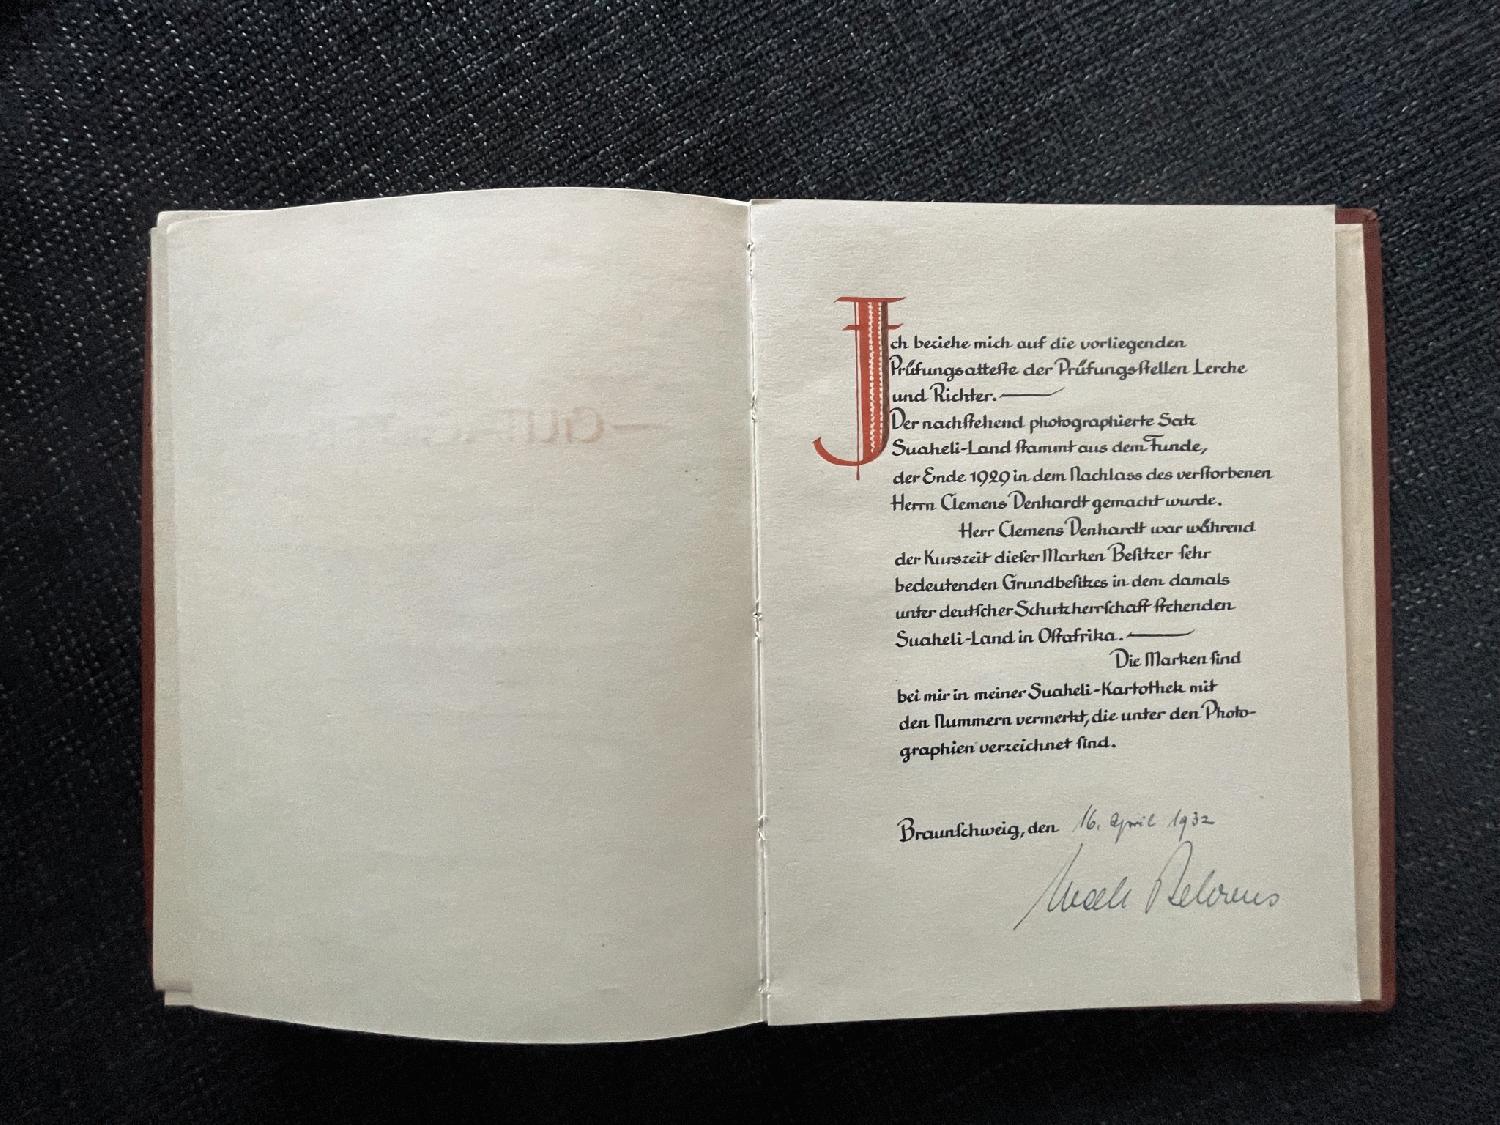 Ich beziehe mich auf die vorliegenden
Prüfungsatteste der Prüfungsstellen Lerche
und Richter.
Der nachstehend photographierte Satz
Suaheli-Land stammt aus dem Funde,
der Ende 1929 in dem Nachlass des verstorbenen
Herrn Clemens Denhardt gemacht wurde.
Herr Clemens Denhardt war während
der Kurszeit dieser Marken Besitzer sehr
bedeutenden Grundbesitzes in dem damals
unter deutscher Schutzherrschaft stehenden
Suaheli-Land in Ostafrika.
Die Marken sind
bei mir in meiner Suaheli-Kartothek mit
den Nummern vermerkt, die unter den Photo-
graphien verzeichnet sind.
Braunschweig, den 16. April 1932
Behrens